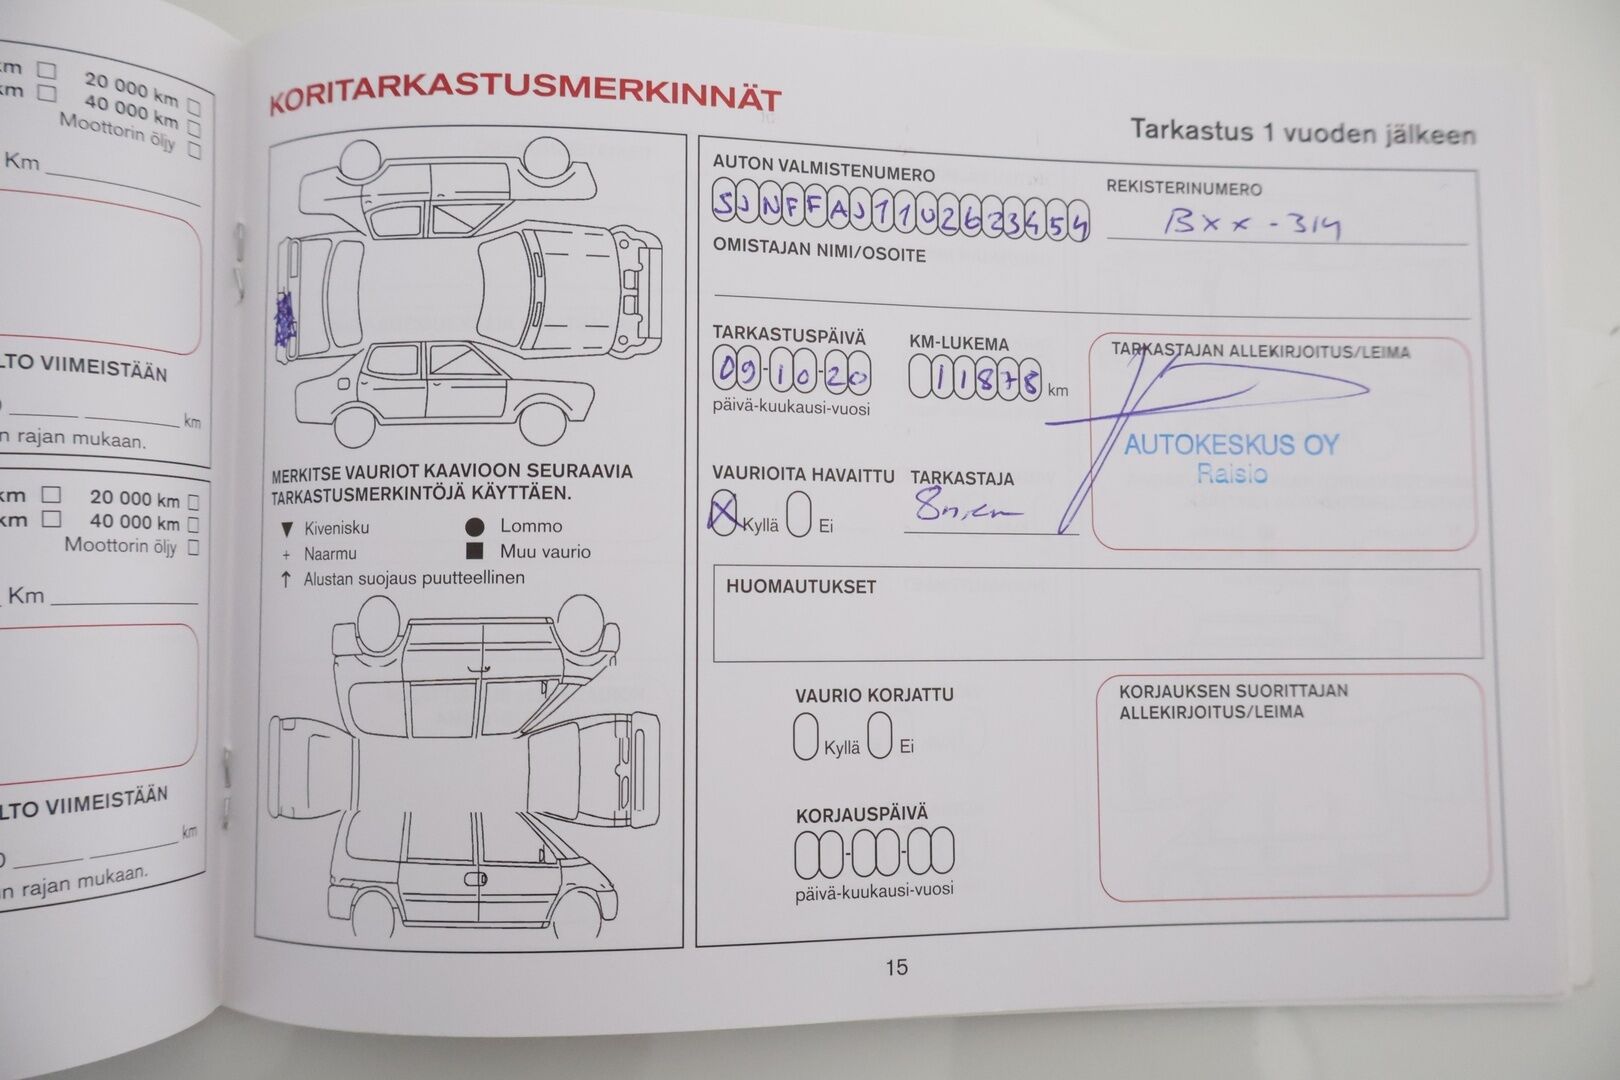 km 20 000 km
km 40 000 km
Moottorin öljy
Km
LTO VIIMEISTÄÄN
km
n rajan mukaan.
km 20 000 km
km 40 000 km
Moottorin öljy
Km
LTO VIIMEISTÄÄN
km
n rajan mukaan.
KORITARKASTUSMERKINNÄT
MERKITSE VAURIOT KAAVIOON SEURAAVIA
TARKASTUSMERKINTÖJÄ KÄYTTÄEN.
▼ Kivenisku ● Lommo
+ Naarmu ■ Muu vaurio
↑ Alustan suojaus puutteellinen
Tarkastus 1 vuoden jälkeen
AUTON VALMISTENUMERO
SJNFFAJ11U2623454
REKISTERINUMERO
BXX-314
OMISTAJAN NIMI/OSOITE
TARKASTUSPÄIVÄ
09-10-20
päivä-kuukausi-vuosi
KM-LUKEMA
11878 km
TARKASTAJAN ALLEKIRJOITUS/LEIMA
AUTOKESKUS OY
Raisio
VAURIOITA HAVAITTU
X Kyllä Ei
TARKASTAJA
HUOMAUTUKSET
VAURIO KORJATTU
Kyllä Ei
KORJAUSPÄIVÄ
päivä-kuukausi-vuosi
KORJAUKSEN SUORITTAJAN
ALLEKIRJOITUS/LEIMA
15